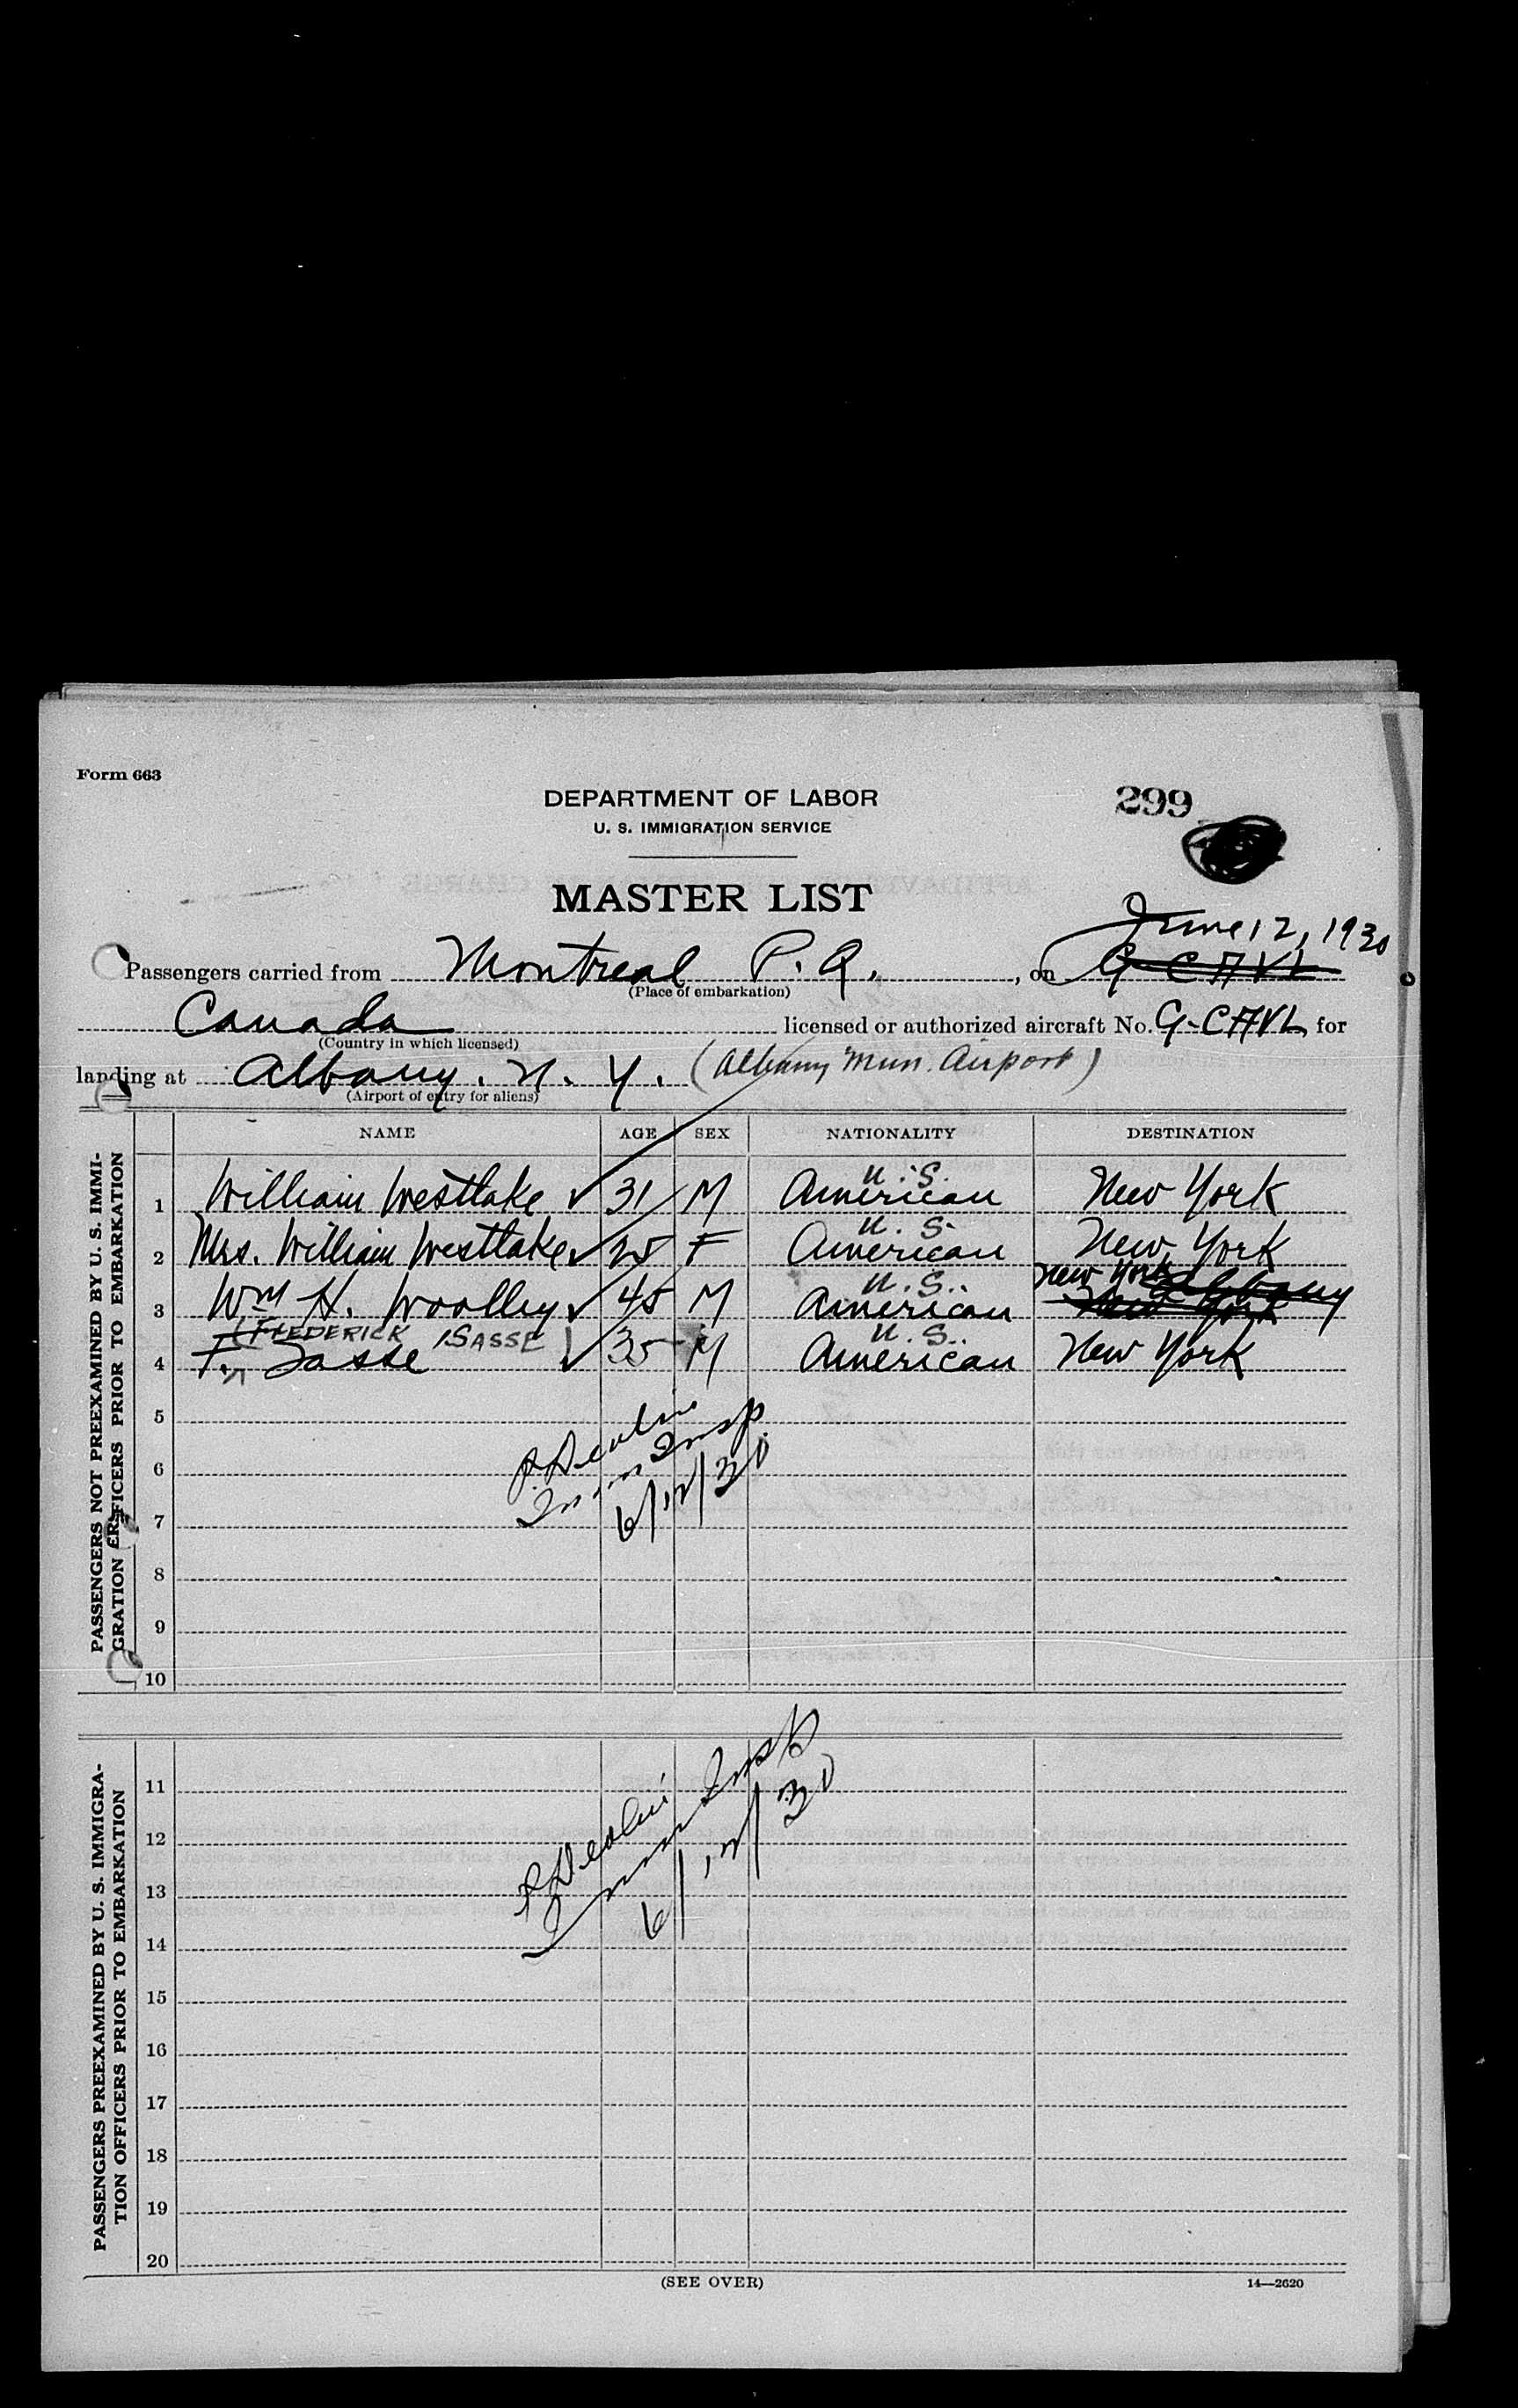 Form 663
DEPARTMENT OF LABOR
U. S. IMMIGRATION SERVICE
299
MASTER LIST
June 12, 1930
Passengers carried from Montreal P. Q. , on G-CAVL
(Place of embarkation)
Canada licensed or authorized aircraft No. G-CAVL for
(Country in which licensed)
landing at Albany. N. Y. (Albany Mun. Airport)
(Airport of entry for aliens)
PASSENGERS NOT PREEXAMINED BY U. S. IMMI-
GRATION OFFICERS PRIOR TO EMBARKATION
NAME AGE SEX NATIONALITY DESTINATION
U.S.
1 William Westlake ✓ 31 M American New York
U.S.
2 Mrs. William Westlake ✓ 25 F American New York
U.S. New York Albany
3 Wm H. Woolley ✓ 45 M American New York
(FREDERICK SASSE) U.S.
4 F. Sasse ✓ 35 M American New York
5
6
7
8
9
10
P. Devlin
Imm Insp.
6/12/30
PASSENGERS PREEXAMINED BY U. S. IMMIGRA-
TION OFFICERS PRIOR TO EMBARKATION
11
12
13
14
15
16
17
18
19
20
P. Devlin
Imm Insp
6/12/30
(SEE OVER)
14—2620